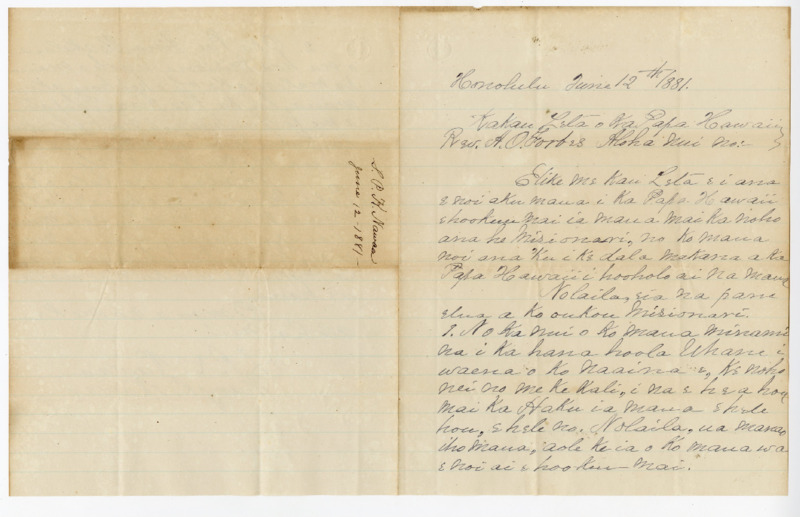 S. P. K. Nawaa
June 12 - 1881 -
Honolulu June 12th 1881.
Kakau Leta o ka Papa Hawaii
Rev. A. O. Forbes Aloha nui no:-
Elike me kau Leta e i ana
e noi aku maua i ka Papa Hawaii
e hookuu mai ia maua mai ka noho
ana he Misionari, no ko maua
noi ana ku i ke dala makana a ka
Papa Hawaii i hooholo ai na maua
Nolaila, eia na pane
elua a ko oukou Misionari.
1. No ka nui o ko maua minami
na i ka hana hoola Uhane i
waena o ko naaina e, Ke noho
nei no me ke kali, i na e hea hou
mai ka Haku ia maua e hele
hou, e hele no. Nolaila, ua manao
iho maua, aole keia o ko maua wa
e noi ai e hookuu mai.